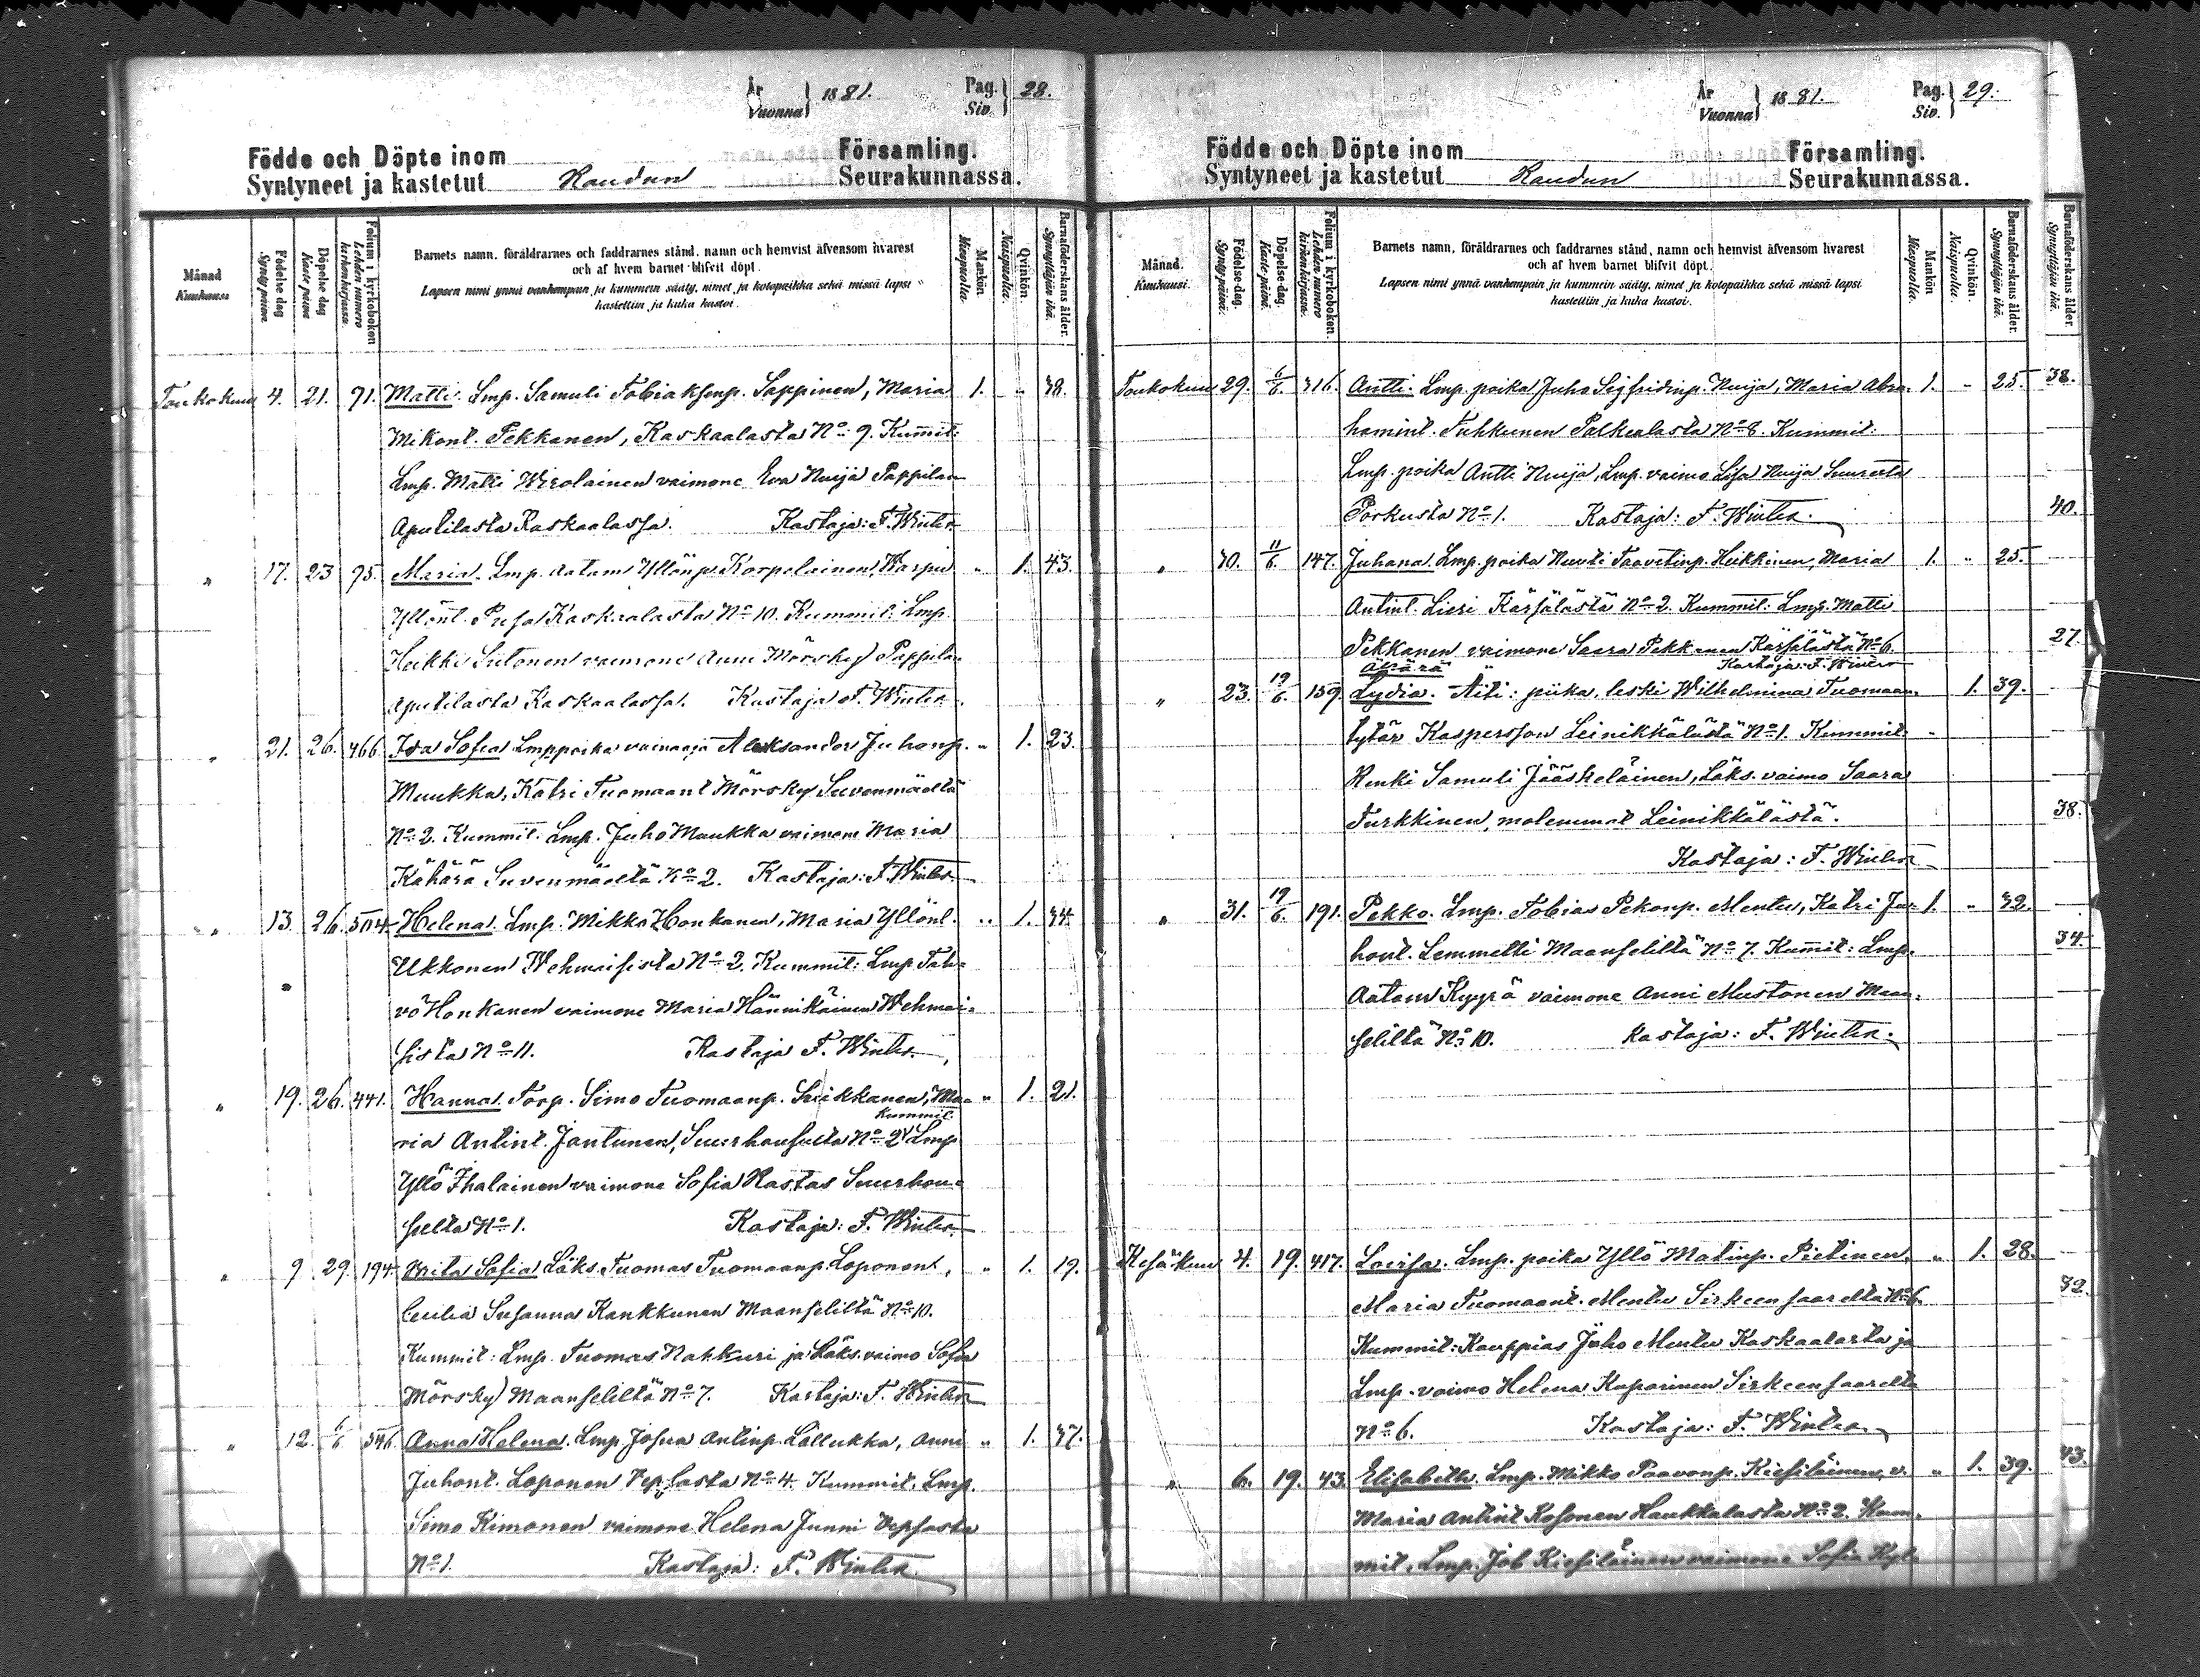 År
Vuonna } 1881.
Pag.
Siv. } 28.
Födde och Döpte inom Församling.
Syntyneet ja kastetut Raudun Seurakunnassa.
Månad. Kuukausi
Födelse dag Synty päivä.
Döpelse dag Kaste päivä
Folium i kyrkoboken Lehden numero kirkonkirjassa.
Barnets namn, föräldrarnes och faddrarnes stånd, namn och hemvist äfvensom hvarest
och af hvem barnet blifvit döpt.
Lapsen nimi ynnä vanhempain ja kummein sääty, nimet ja kotopaikka sekä missä lapsi
kastettiin ja kuka kastoi.
Mankön. Miespuolia.
Qvinkön. Naispuolia.
Barnaföderskans ålder. Synnyttäjän ikä.
Toukokuu 4. 21. 91. Matti. Lmp. Samuli Tobiaksenp. Sappinen, Maria 1. " 38.
Mikont. Pekkanen, Kaskaalasta No 9. Kummit:
Lmp. Matti Wirolainen vaimone Eva Nuija Pappilan
Aputilasta Kaskaalassa. Kastaja: F. Winter
" 17. 23 95. Maria. Lmp. Aatam Yllönp. Korpelainen, Karpu " 1. 43.
Yllönt. Pusa Kaskaalasta No 10. Kummit: Lmp.
Heikki Sutonen vaimone Anni Mörsky Pappilan
aputilasta Kaskaalassa. Kastaja F. Winter.
" 21. 26. 466. Ida Sofia Lmp poika vainaja Aleksander Juhonp. " 1. 23.
Muukka, Katri Tuomaant Mörsky Suvenmäeltä
No 2. Kummit. Lmp. Juho Muukka vaimone Maria
Kähärä Suvenmäeltä No 2. Kastaja: F. Winter
" 13. 26. 504. Helena. Lmp. Mikko Honkanen, Maria Yllönt. " 1. 34.
Ukkonen Wehmaisista No 2. Kummit: Lmp Tah-
vo Honkanen vaimone Maria Hännikäinen Wehmai-
sista No 11. Kastaja F. Winter.
" 19. 26. 441. Hanna. Torp. Simo Tuomaanp. Suikkanen, Ma- " 1. 21.
Kummit.
ria Antint. Jantunen, Suurhousulta No 2 Lmp
Yllö Ihalainen vaimone Sofia Rastas Suurhou-
sulta No 1. Kastaja: F. Winter.
" 9 29. 194. Wita Sofia Läks. Tuomas Tuomaanp. Loponen, " 1. 19.
Cecilia Susanna Kankkunen Maanseliltä No 10.
Kummit: Lmp. Tuomas Nakkuri ja Läks. vaimo Sofia
Mörsky Maanseliltä No 7. Kastaja: F. Winter
" 12. 6/6 546. Anna Helena. Lmp Josua Antinp. Lallukka, Anni " 1. 37.
Juhont. Loponen Vepsasta No 4. Kummit. Lmp.
Simo Kimonen vaimone Helena Junni Vepsasta
No 1. Kastaja: F. Winter.
År
Vuonna } 1881.
Pag.
Siv. } 29.
Födde och Döpte inom Församling.
Syntyneet ja kastetut Raudun Seurakunnassa.
Månad. Kuukausi.
Födelse-dag. Syntypäivä.
Döpelse-dag. Kaste-päivä.
Folium i kyrkoboken. Lehden numero kirkonkirjassa.
Barnets namn, föräldrarnes och faddrarnes stånd, namn och hemvist äfvensom hvarest
och af hvem barnet blifvit döpt.
Lapsen nimi ynnä vanhempain ja kummein sääty, nimet ja kotopaikka sekä missä lapsi
kastettiin ja kuka kastoi.
Mankön Miespuolia.
Qvinkön. Naispuolia.
Barnaföderskans ålder. Synnyttäjän ikä.
Toukokuu 29. 6/6. 316. Antti. Lmp. poika Juho Sigfridinp. Nuija, Maria Abra- 1. " 25.
hamint. Tuhkunen Palkealasta No 8. Kummit:
Lmp. poika Antti Nuija, Lmp. vaimo Lisa Nuija Suuresta
Porkusta No 1. Kastaja: F. Winter.
" 30. 11/6. 147. Juhana. Lmp. poika Nuuti Taavetinp. Heikkinen, Maria 1. " 25.
Antint. Lieri Kärsälästä No 2. Kummit: Lmp. Matti
Pekkanen vaimone Saara Pekkanen Kärsälästä No 6.
Äpärä Kastaja: F. Winter
" 23. 19/6. 159. Lydia. Äiti: piika, leski Wilhelmina Tuomaan 1. 39.
tytär Kaspersson Leinikkälästä No 1. Kummit
Renki Samuli Jääskeläinen, Läks. vaimo Saara
Turkkinen, molemmat Leinikkälästä.
Kastaja: F. Winter
" 31. 19/6. 191. Pekko. Lmp. Tobias Pekonp. Mentu, Katri Ju- 1. " 32.
hont. Lemmetti Maanseliltä No 7. Kummit: Lmp.
Aatam Kyyrä vaimone Anni Mustonen Maan-
seliltä No 10. Kastaja: F. Winter.
Kesäkuu 4. 19. 417. Lovisa. Lmp. poika Yllö Matinp. Pietinen, " 1. 28.
Maria Tuomaant. Mentu Sirkeensaarelta No 6.
Kummit: Kauppias Juho Mentu Kaskaalasta ja
Lmp. vaimo Helena Kaparinen Sirkeensaarelta
No 6. Kastaja: F. Winter.
" 6. 19. 43. Elisabeth. Lmp. Mikko Paavonp. Kiesiläinen, v. " 1. 39.
Maria Antint Kosonen Haukkalasta No 2. Kum-
mit. Lmp. Job Kiesiläinen vaimone Sofia Kyl-
Barnaföderskans ålder. Synnyttäjän ikä.
38.
40.
27.
38.
34
32.
43.